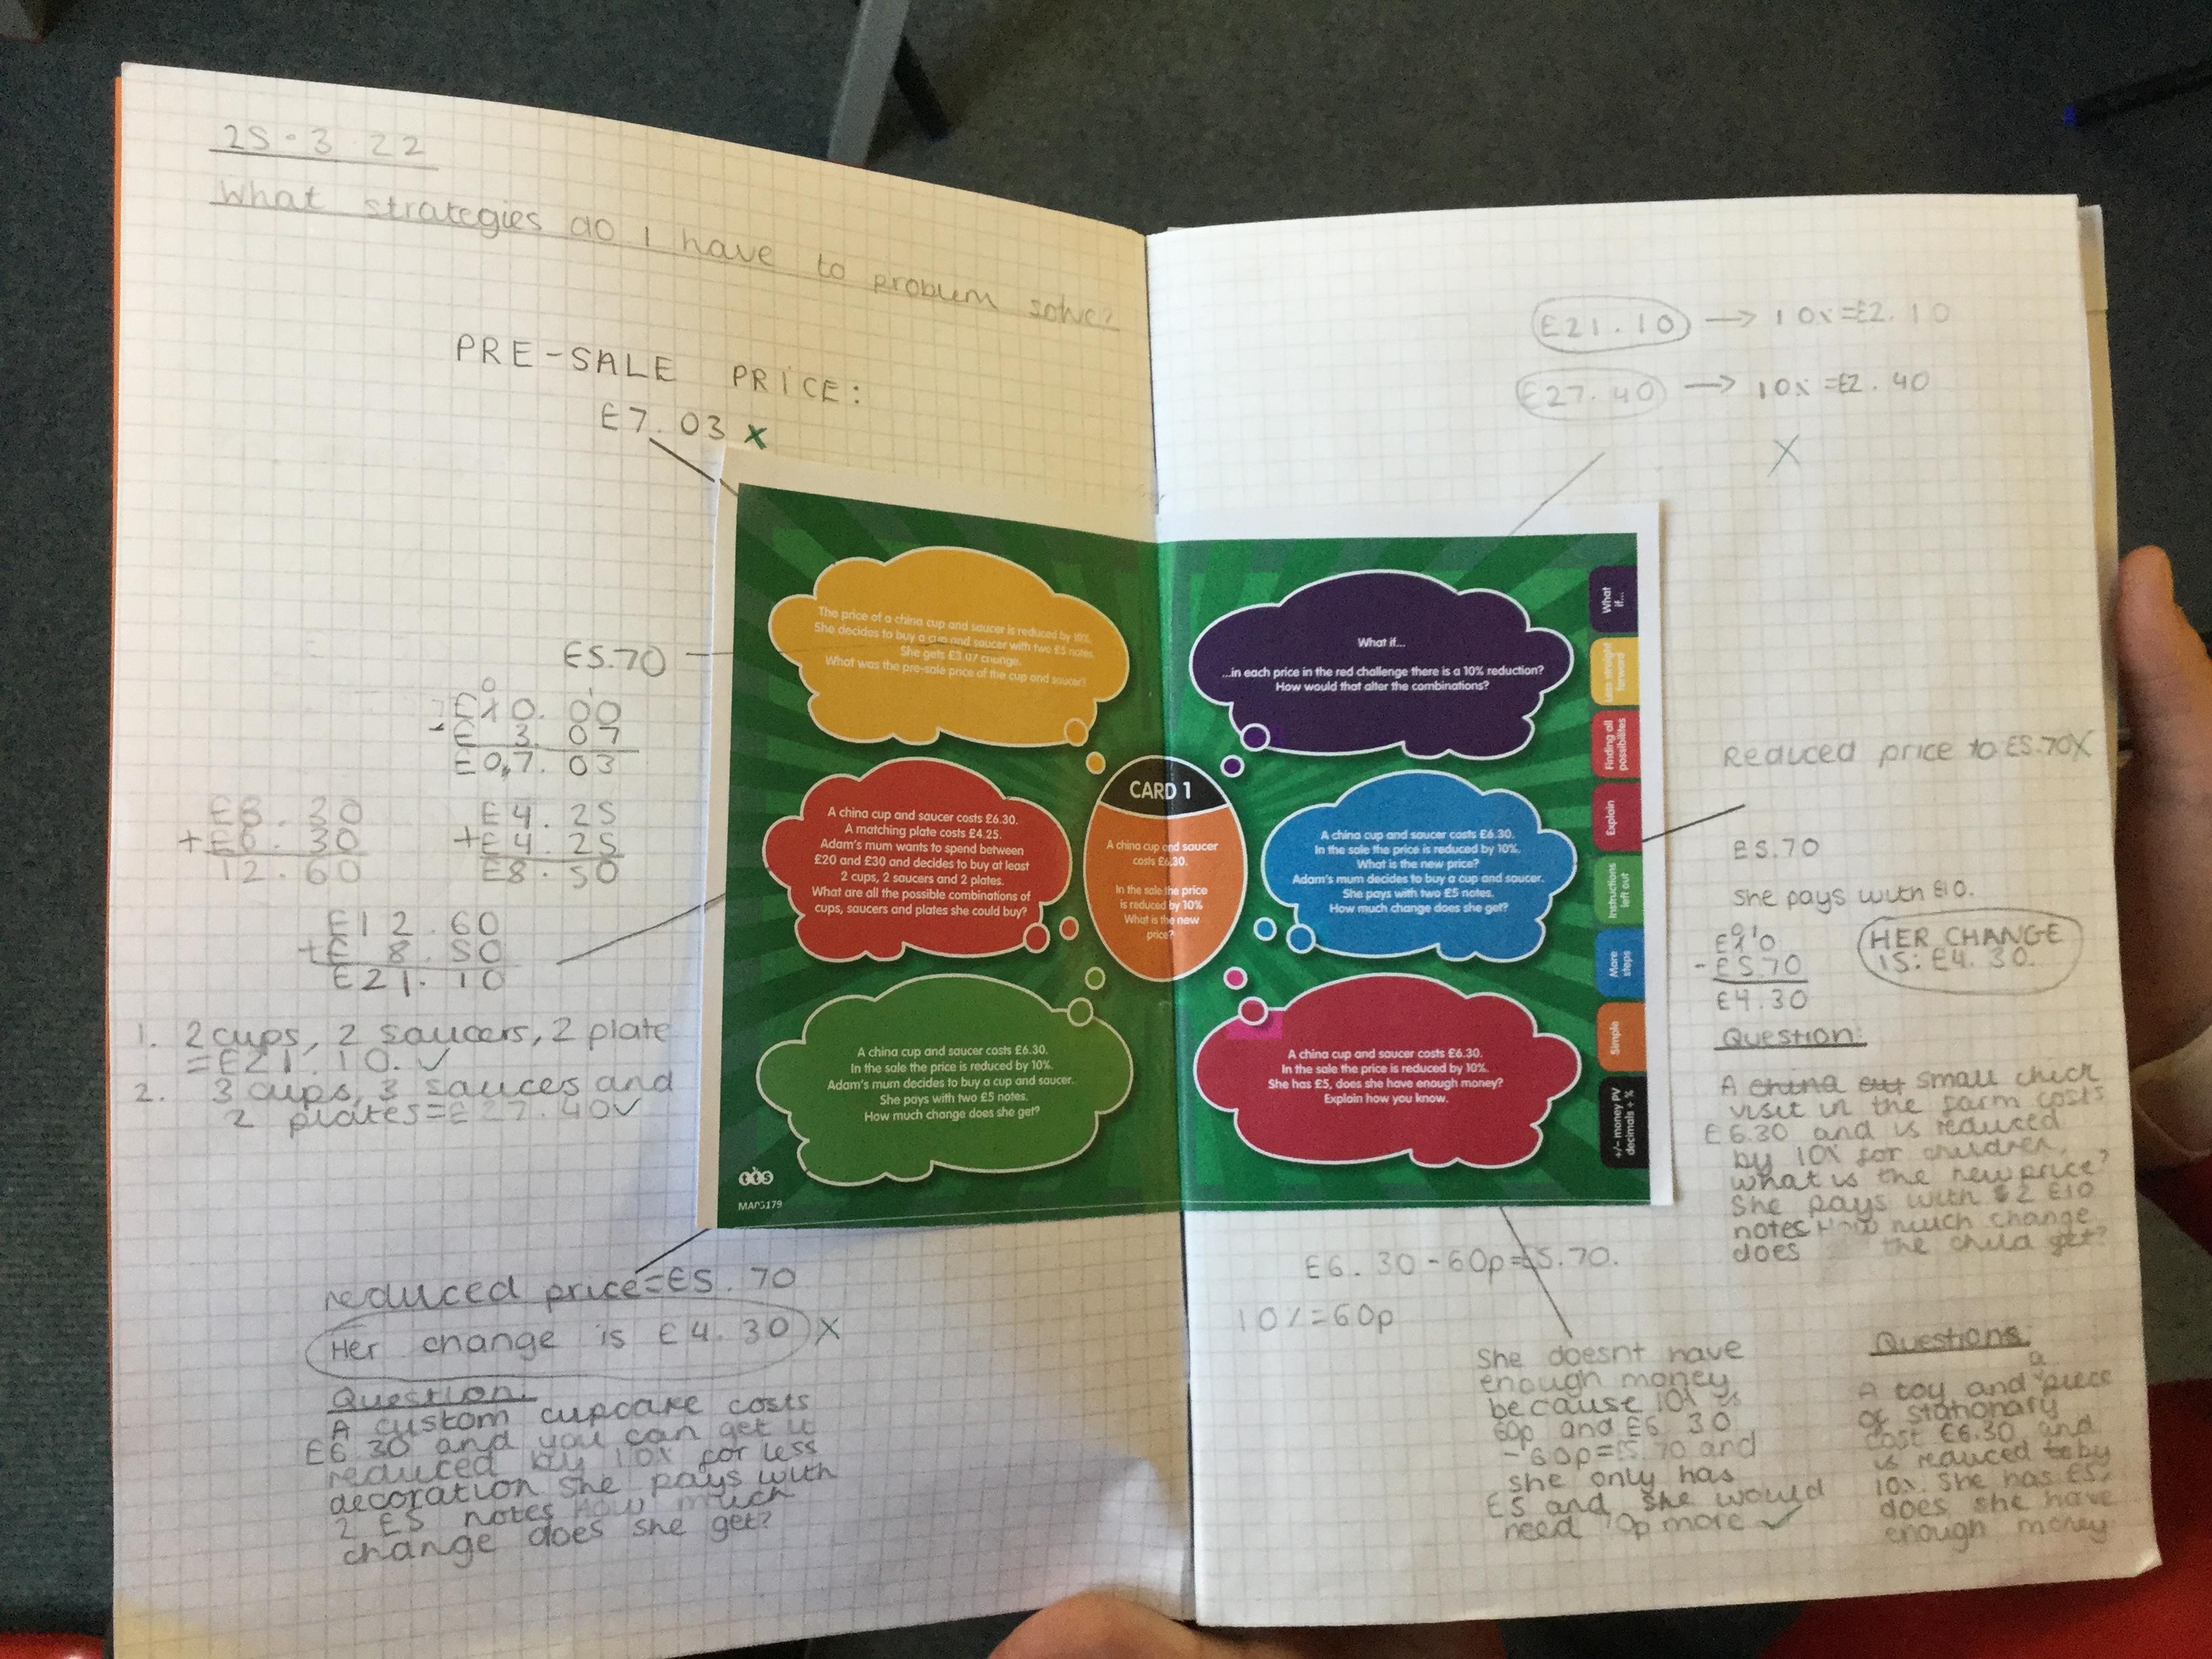 25.3.22
What strategies do I have to problem solve?
PRE-SALE PRICE:
£7.03 x
£5.70
0 1
£10.00
- £ 3.07
£0,7.03
£6.30
+£6.30
12.60
£4.25
+£4.25
£8.50
£12.60
+£ 8.50
£21.10
1. 2 cups, 2 saucers, 2 plate
=£21.10. ✓
2. 3 cups, 3 sauces and
2 plates=£27.40✓
reduced price=£5.70
Her change is £4.30 X
Question.
A custom cupcake costs
£6.30 and you can get it
reduced by 10% for less
decoration she pays with
2 £5 notes How much
change does she get?
The price of a china cup and saucer is reduced by 10%.
She decides to buy a cup and saucer with two £5 notes.
She gets £3.07 change.
What was the pre-sale price of the cup and saucer?
A china cup and saucer costs £6.30.
A matching plate costs £4.25.
Adam's mum wants to spend between
£20 and £30 and decides to buy at least
2 cups, 2 saucers and 2 plates.
What are all the possible combinations of
cups, saucers and plates she could buy?
A china cup and saucer costs £6.30.
In the sale the price is reduced by 10%.
Adam's mum decides to buy a cup and saucer.
She pays with two £5 notes.
How much change does she get?
tts
CARD 1
A china cup and saucer
costs £6.30.
In the sale the price
is reduced by 10%
What is the new
price?
What if...
...in each price in the red challenge there is a 10% reduction?
How would that alter the combinations?
A china cup and saucer costs £6.30.
In the sale the price is reduced by 10%.
What is the new price?
Adam's mum decides to buy a cup and saucer.
She pays with two £5 notes.
How much change does she get?
A china cup and saucer costs £6.30.
In the sale the price is reduced by 10%.
She has £5, does she have enough money?
Explain how you know.
What
if...
Less straight
forward
Finding all
possibilities
Explain
Instructions
left out
More
steps
Simple
+/- money PV
decimals + %
£21.10 → 10%=£2.10
£27.40 → 10%=£2.40
X
Reduced price to £5.70X
£5.70
She pays with £10.
0 1
£10
-£5.70
£4.30
HER CHANGE
IS: £4.30.
Question:
A china cut small chick
visit in the farm costs
£6.30 and is reduced
by 10% for children,
what is the new price?
She pays with 2 £10
notes How much change
does the child get?
£6.30-60p=£5.70.
10%=60p
She doesnt have
enough money
because 10% is
60p and £6 30
-60p=£5.70 and
she only has
£5 and she would
need 70p more ✓
Questions:
A toy and a piece
of stationary
cost £6.30 and
is reduced to by
10%. She has £5,
does she have
enough money